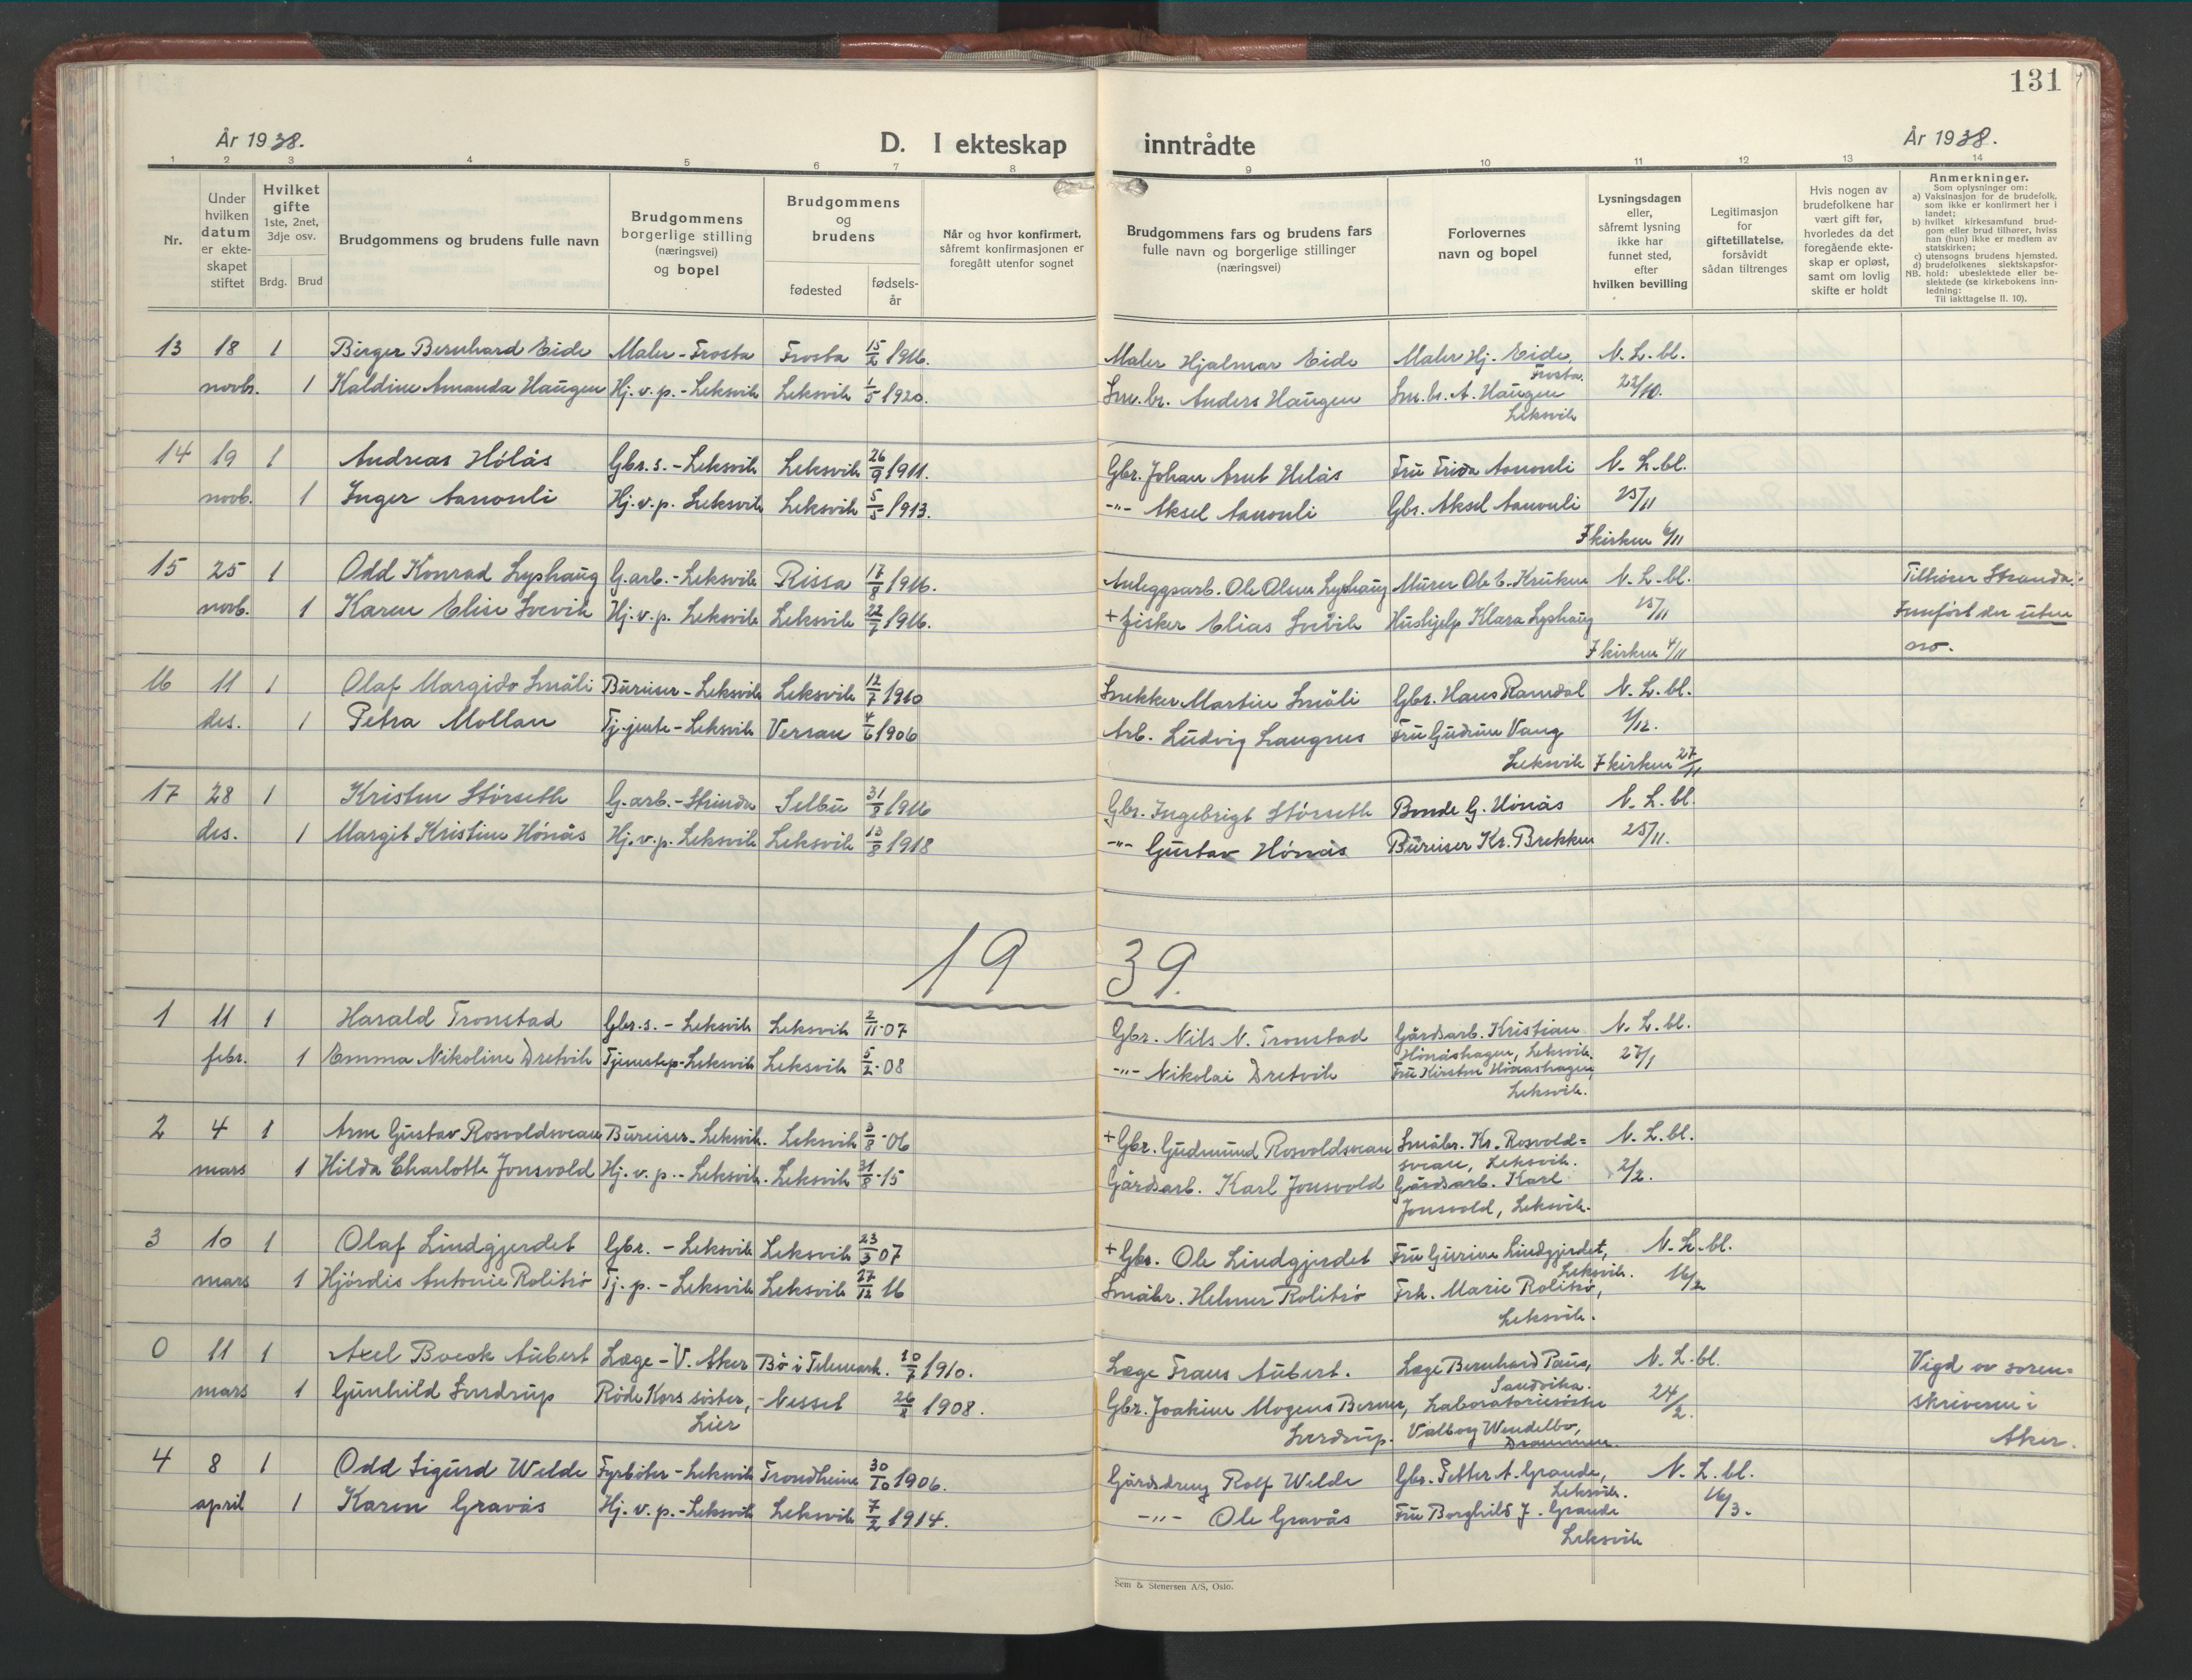 131
År 1938.
D. I ekteskap inntrådte
År 1938.
1 2 3 4 5 6 7 8 9 10 11 12 13 14
Nr.
Under hvilken datum er ekteskapet stiftet
Hvilket gifte 1ste, 2net, 3dje osv.
Brdg. Brud
Brudgommens og brudens fulle navn
Brudgommens borgerlige stilling (næringsvei) og bopel
Brudgommens og brudens
fødested
fødselsår
Når og hvor konfirmert, såfremt konfirmasjonen er foregått utenfor sognet
Brudgommens fars og brudens fars fulle navn og borgerlige stillinger (næringsvei)
Forlovernes navn og bopel
Lysningsdagen eller, såfremt lysning ikke har funnet sted, efter hvilken bevilling
Legitimasjon for giftetillatelse, forsåvidt sådan tiltrenges
Hvis nogen av brudefolkene har vært gift før, hvorledes da det foregående ekteskap er opløst, samt om lovlig skifte er holdt
Anmerkninger.
Som oplysninger om:
a) Vaksinasjon for de brudefolk, som ikke er konfirmert her i landet;
b) hvilket kirkesamfund brudgom eller brud tilhører, hviss han (hun) ikke er medlem av statskirken;
c) utensogns brudens hjemsted.
d) brudefolkenes slektskapsforhold: ubeslektede eller beslektede (se kirkebokens innledning:
NB. Til iakttagelse II. 10).
13 18 1 Birger Bernhard Eide Maler - Frosta Frosta 15/2 1916. Maler Hjalmar Eide Maler Hj. Eide, Frosta. N. L. bl.
novbr. 1 Kaldine Amanda Haugen Hj. v. p. - Leksvik Leksvik 1/5 1920. Sm. br. Anders Haugen Sm. br. A. Haugen Leksvik 22/10.
14 19 1 Andreas Hólås Gbr. s. - Leksvik Leksvik 26/9 1911. Gbr. Johan Arnt Helås Fru Frida Aanonli N. L. bl.
novb. 1 Inger Aanonli Hj. v. p. Leksvik Leksvik 5/5 1913. -"- Aksel Aanonli Gbr. Aksel Aanonli 25/11
I kirken 6/11
15 25 1 Odd Konrad Lyshaug G. arb. - Leksvik Rissa 17/8 1916. Anleggsarb. Ole Olsen Lyshaug Murer Ole E. Kruken N. L. bl. Tilhører Stranda.
novb. 1 Karen Elise Sœvik Hj. v. p. Leksvik Leksvik 22/7 1916. + fisker Elias Sœvik Hushjelp Klara Lyshaug 15/11 Innført der uten
I kirken 4/11 no.
16 11 1 Olaf Margido Småli Bureiser - Leksvik Leksvik 12/7 1910 Snekker Martin Småli Gbr. Hans Ramdal N. L. bl.
des. 1 Petra Mollan Tj. jente - Leksvik Verran 4/6 1906 Arb. Ludvig Langnes Fru Gudrun Vang Leksvik 1/12.
I kirken 27/11
17 28 1 Kristen Stórseth G. arb. - Strinda Selbu 31/8 1916 Gbr. Ingebrigt Stórseth Bonde G. Hónås N. L. bl.
des. 1 Margit Kristine Hónås Hj. v. p. Leksvik Leksvik 13/8 1918 -"- Gustav Hónås Bureiser Kr. Brekken 25/11.
19 39.
1 11 1 Harald Tronstad Gbr. s. - Leksvik Leksvik 2/11 - 07 Gbr. Nils N. Tronstad Gårdsarb. Kristian Hónåshagen, Leksvik. N. L. bl.
febr. 1 Emma Nikoline Dretvik Tjenestep - Leksvik Leksvik 5/2 - 08 -"- Nikolai Dretvik Fru Kirsten Hónåshagen, Leksvik. 27/1
2 4 1 Arne Gustav Rosvoldsvean Bureiser - Leksvik. Leksvik 3/8 - 06 + Gbr. Gudmund Rosvoldsvean Småbr. Kr. Rosvoldsvean, Leksvik. N. L. bl.
mars 1 Hilda Charlotte Jonsvold Hj. v. p. - Leksvik. Leksvik 31/8 - 15 Gårdsarb. Karl Jonsvold Gårdsarb. Karl Jonsvold, Leksvik. 2/2.
3 10 1 Olaf Lindgjerdet Gbr. - Leksvik Leksvik 23/3 07 + Gbr. Ole Lindgjerdet Fru Gurine Lindgjerdet, Leksvik. N. L. bl.
mars 1 Hjórdis Antonie Rolitró Tj. p. - Leksvik Leksvik 27/12 16 Småbr. Helmer Rolitró Frk. Marie Rolitró, Leksvik. 16/2
0 11 1 Axel Boeck Aubert Læge - V. Aker Bó i Telemark. 10/7 1910. Læge Frans Aubert. Læge Bernhard Paus, Sandvika. N. L. bl. Vigd av soren-
mars 1 Gunhild Sverdrup Røde Kors søster, Lier - Nesset 26/8 1908. Gbr. Joakim Mogens Berner Sverdrup. Laboratoriesøster Valborg Wendelbo, Drammen. 24/2. skriveren i Aker.
4 8 1 Odd Sigurd Welde Fyrbóter - Leksvik Trondheim 30/10 1906. Gårdsdreng Rolf Welde Gbr. Petter A. Grande, Leksvik. N. L. bl.
april 1 Karen Gravås Hj. v. p. - Leksvik Leksvik 7/2 1914. -"- Ole Gravås Fru Borghild J. Grande Leksvik 16/3.
Sem & Stenersen A/S, Oslo.